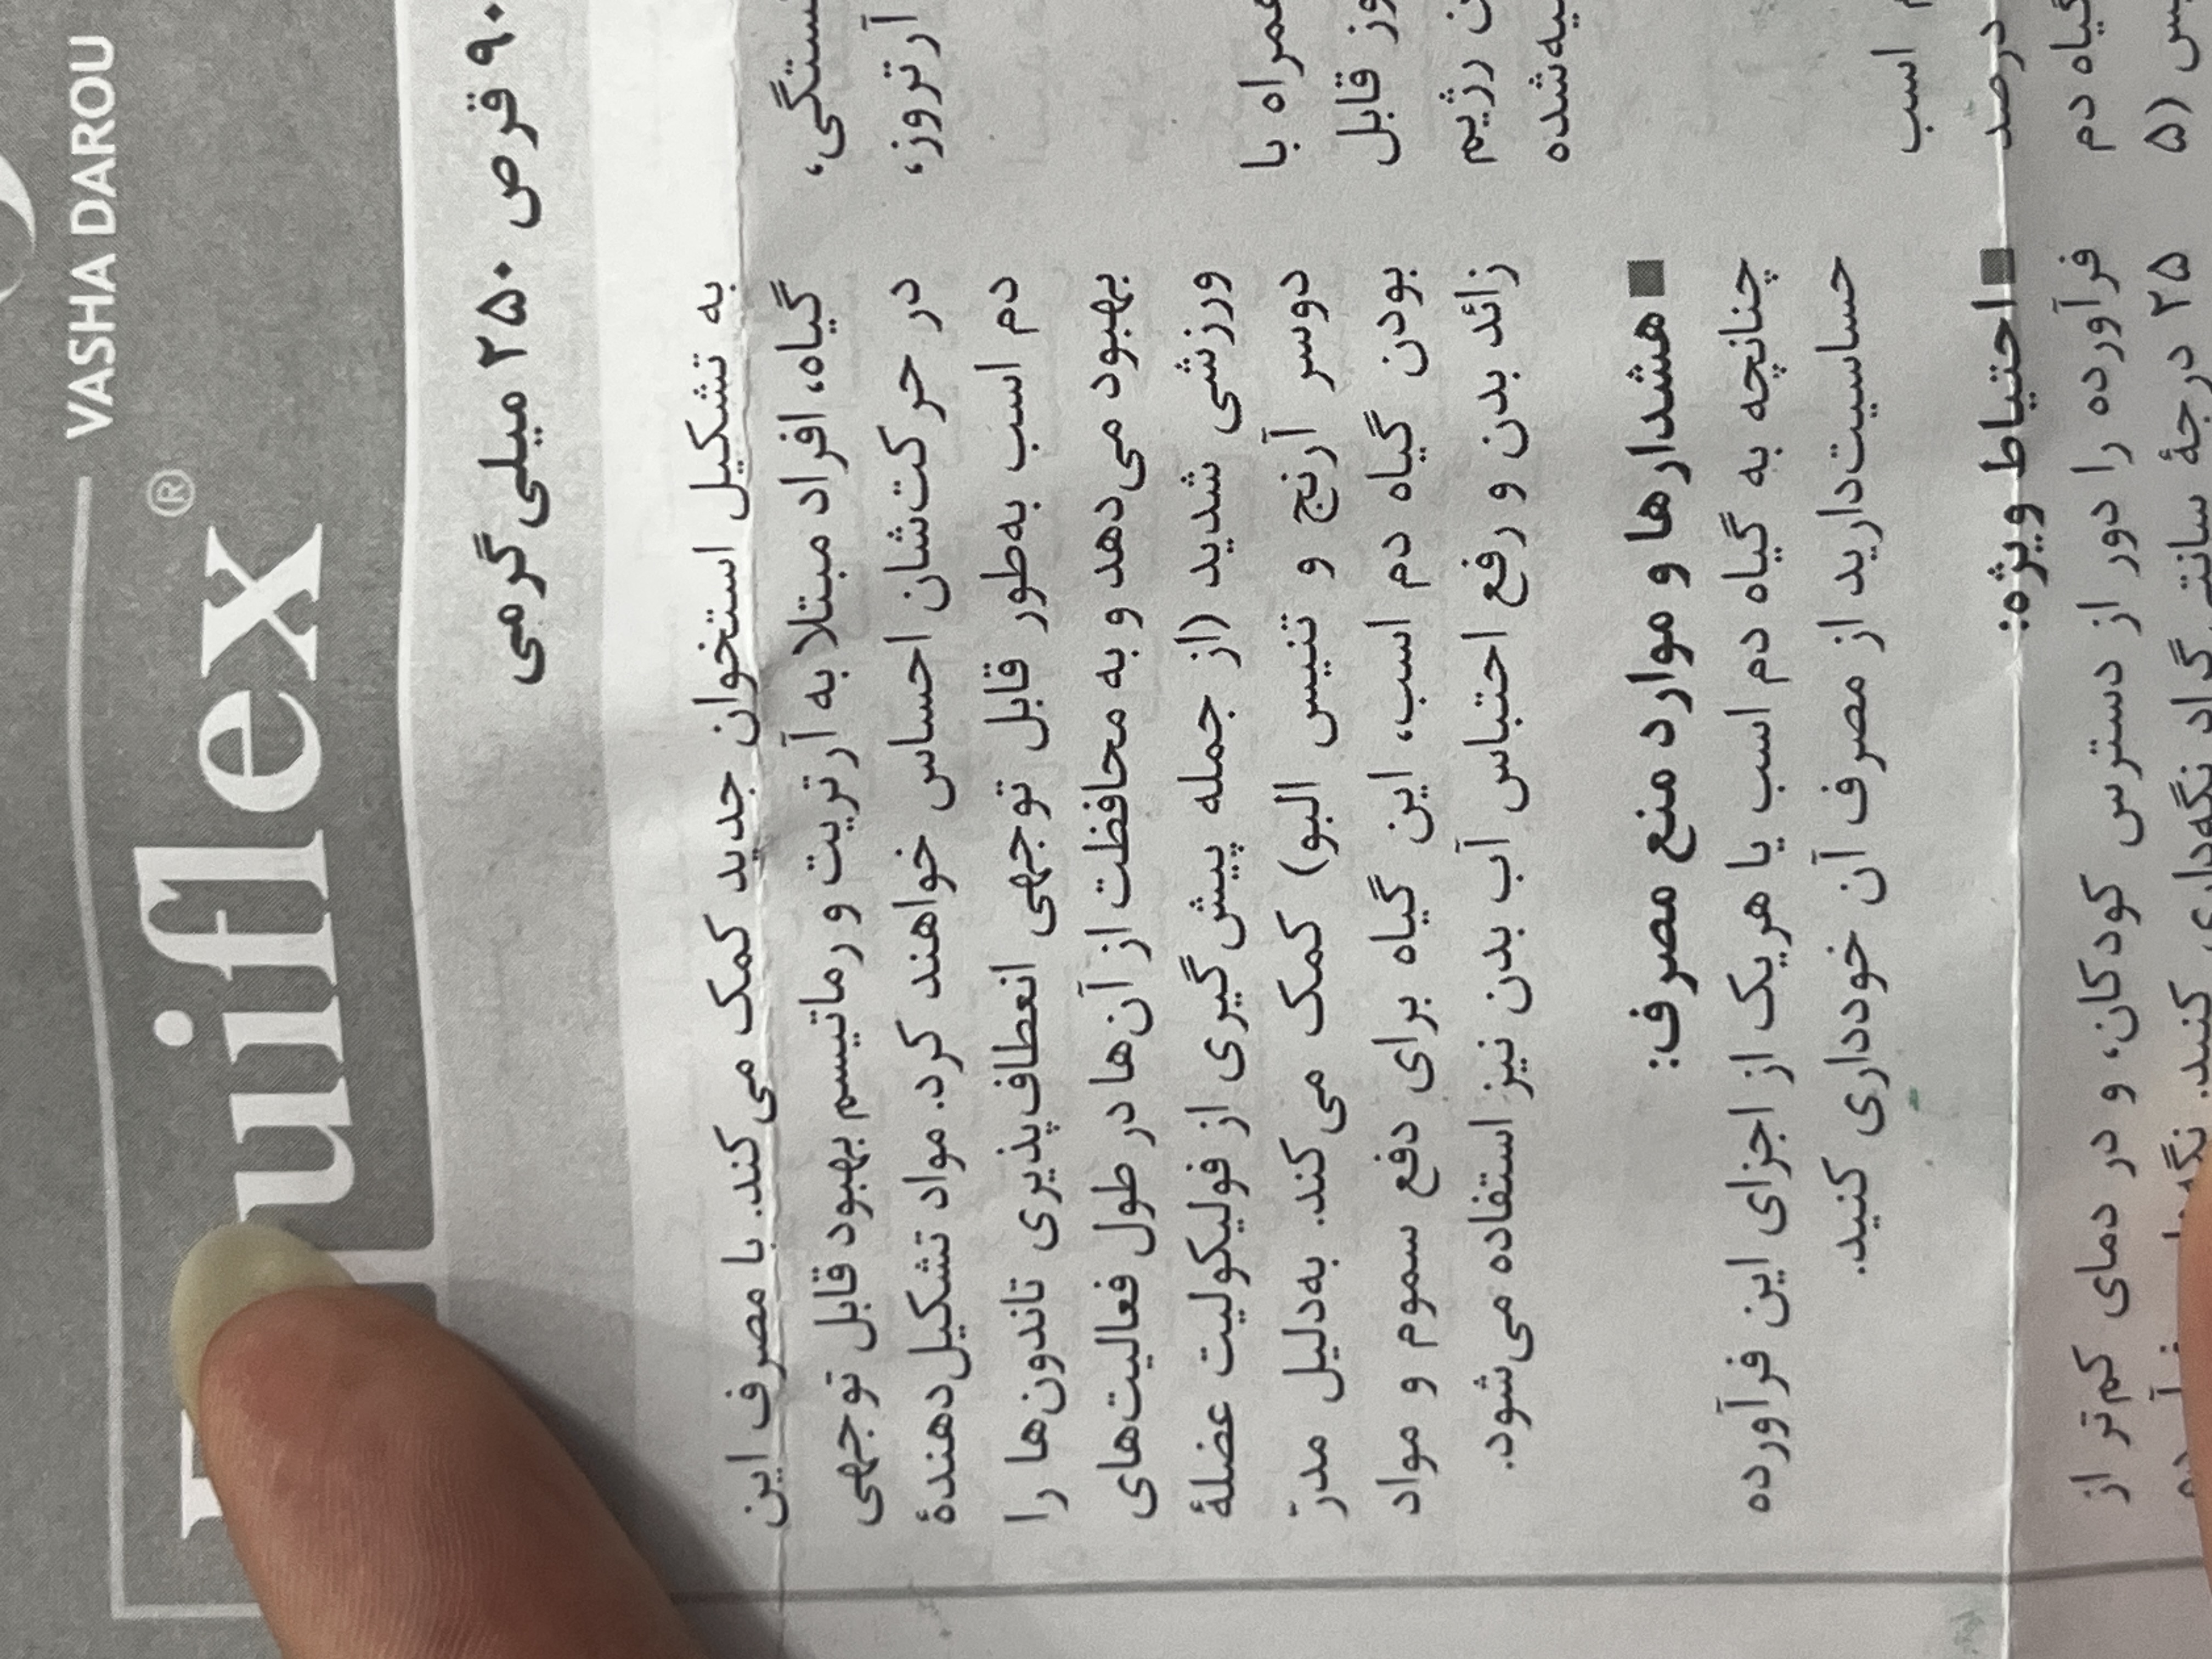 VASHA DAROU
uiflex®
۹۰ قرص ۲۵۰ میلی گرمی
به تشکیل استخوان جدید کمک می‌کند. با مصرف این
گیاه، افراد مبتلا به آرتریت و رماتیسم بهبود قابل توجهی
در حرکت‌شان احساس خواهند کرد. مواد تشکیل‌دهندهٔ
دم اسب به‌طور قابل توجهی انعطاف‌پذیری تاندون‌ها را
بهبود می‌دهد و به محافظت از آن‌ها در طول فعالیت‌های
ورزشی شدید (از جمله پیش‌گیری از فولیکولیت عضلهٔ
دوسر آرنج و تنیس البو) کمک می‌کند. به‌دلیل مدرّ
بودن گیاه دم اسب، این گیاه برای دفع سموم و مواد
زائد بدن و رفع احتباس آب بدن نیز استفاده می‌شود.
■ هشدارها و موارد منع مصرف:
چنانچه به گیاه دم اسب یا هریک از اجزای این فرآورده
حساسیت‌دارید از مصرف آن خودداری کنید.
■ احتیاط ویژه:
فرآورده را دور از دسترس کودکان، و در دمای کم‌تر از
۲۵ درجهٔ سانتی‌گراد نگه‌داری کنید.
آرتروز،
همراه با
قابل
رژیم
اسب
درصد
گیاه دم
(۵